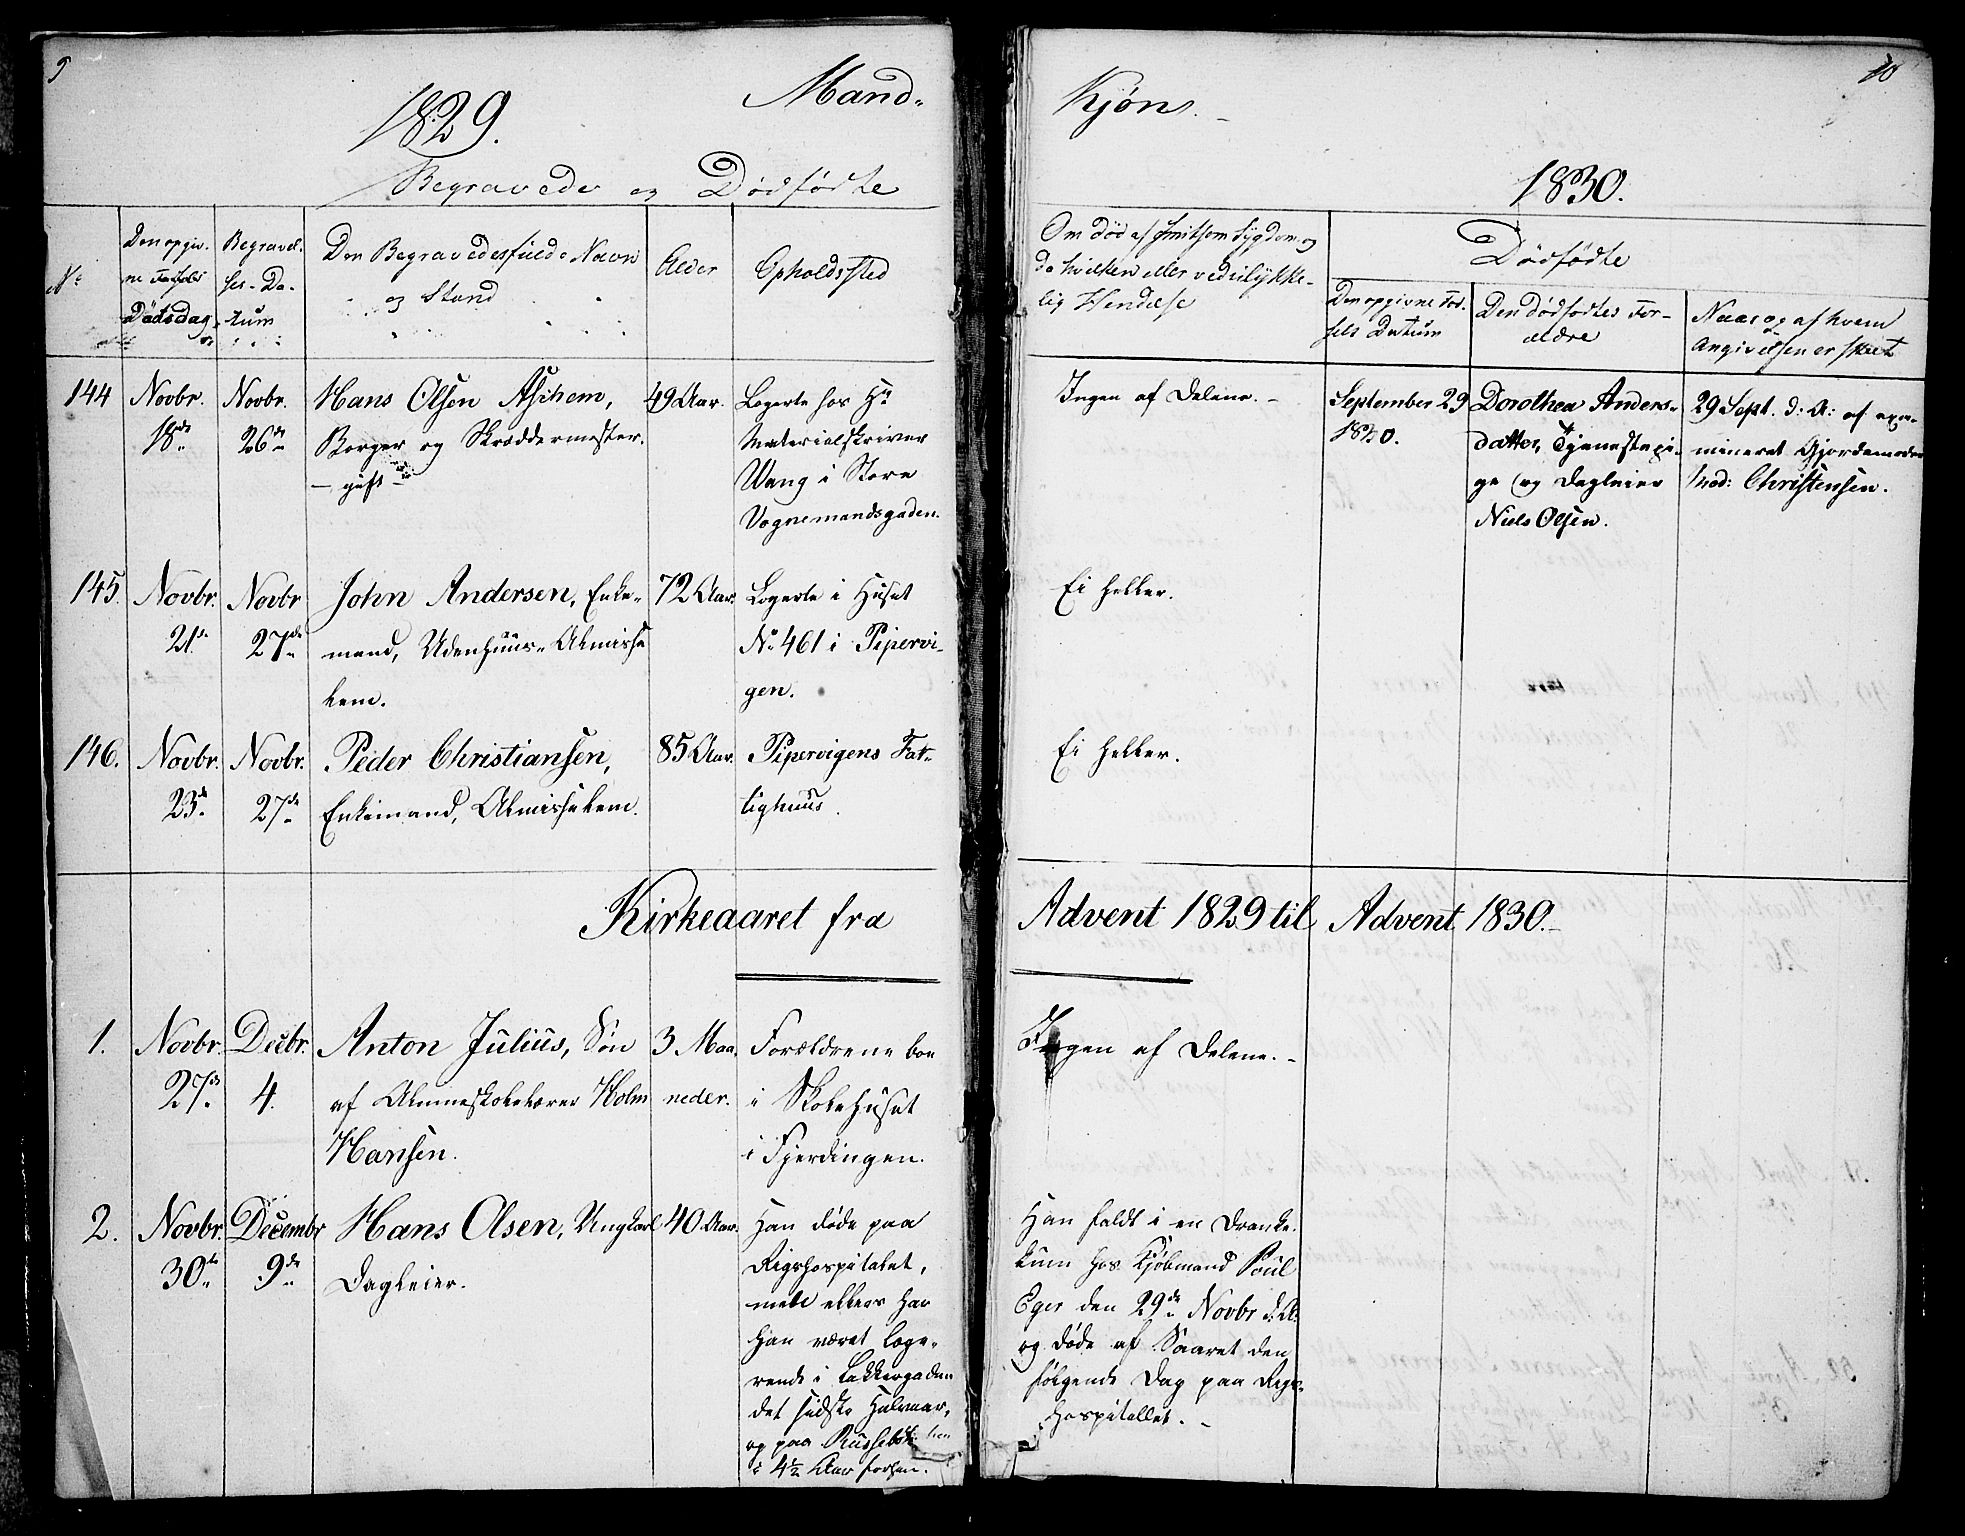 9
1829.
Mand-
Begravede og Dødfødte
No
Den opgiv-
ne
Dødsdag
Begravel-
ses-Da-
tum
Den Begravedes fulde Navn
og Stand
Alder
Opholdssted
144
Novbr.
18de
Novbr.
26de
Hans Olsen Aschem,
Borger og Skræddermester.
- gift -
49 Aar.
Logerte hos Hr
Materialskriver
Wang i Store
Vognemandsgaden.
145.
Novbr.
21de
Novbr
27de
John Andersen, Enke-
mand, Udenhuus-Almisse
lem.
72 Aar.
Logerte i Huset
No 461 i Pipervi-
gen.
146.
Novbr.
23de
Novbr.
27de
Peder Christiansen,
Enkemand, Almisselem.
85 Aar.
Pipervigens Fat-
tighuus.
Kirkeaaret fra
1.
Novbr.
27de
Decbr.
4.
Anton Julius, Søn
af Almueskolelærer Holm
Hansen.
3 Maa-
neder.
Forældrene boe
i Skolehuset
i Fjerdingen.
2.
Novbr.
30te
Decembr
9de
Hans Olsen, Ungkarl
Dagleier.
40 Aar.
Han døde paa
Rigshospitalet,
men ellers har
han været loge-
rende i Lakkegaden
det sidste Halvaar,
og paa
i 4½ Aar forhen.
10
Kjøn.
1830.
Om død af smitsom Sygdom og
da hvilken eller ved ulykke-
lig Hendelse
Dødfødte
Den opgivne Fød-
sels Datum
Den dødfødtes For-
ældre
Naar og af hvem
Angivelsen er skeet
Ingen af Delene. -
September 29
1830.
Dorothea Anders-
datter, Tjenestepi-
ge og Dagleier
Niels Olsen.
29 Sept. d: A: af exa-
mineret Gjordemoder
Mad: Christensen.
Ei heller.
Ei heller.
Advent 1829 til Advent 1830.-
Ingen af Delene. -
Han faldt i en Dranke-
kum hos Kjøbmand Poul
Eger den 29de Novbr d. A.
og døde af Saaret den
følgende Dag paa Rigs-
hospitallet. -